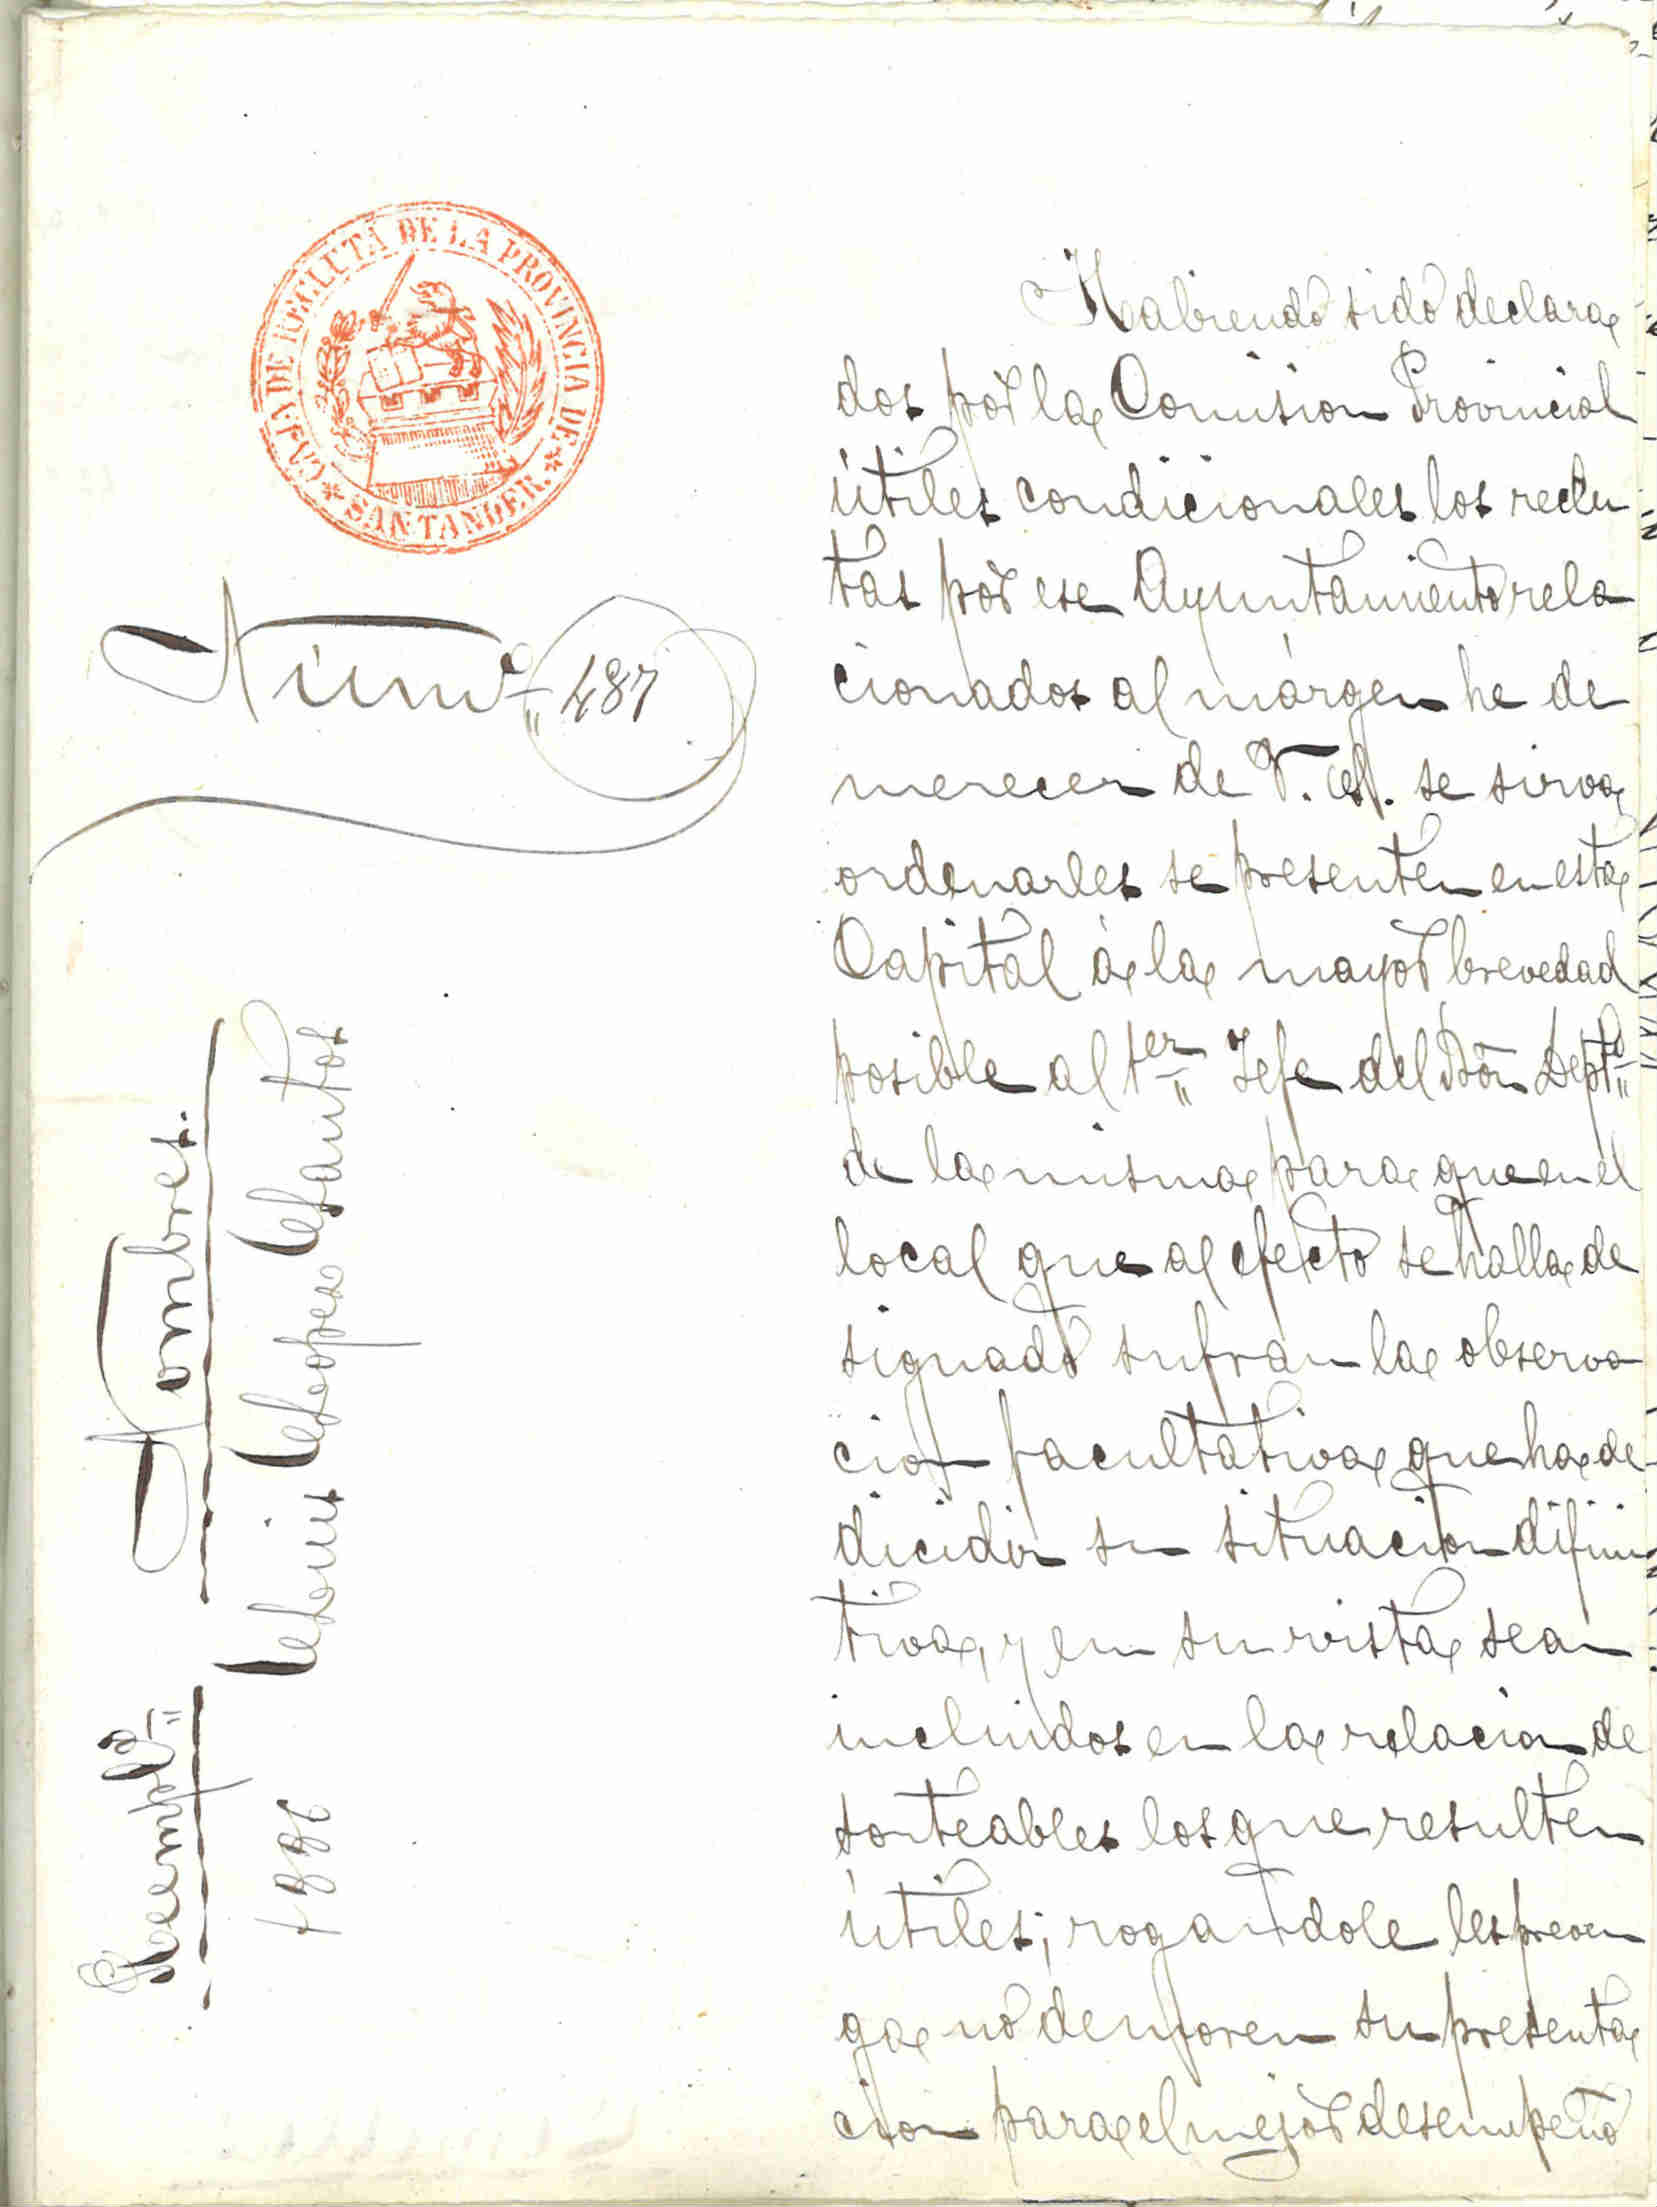 CAJA DE RECLUTA DE LA PROVINCIA DE
* SANTANDER. *
Núm.º 487
Reemplº Nombres.
1886 Lopez Santos
Habiendo sido declara
dos por la Comision Provincial
útiles condicionales los reclu
tas por ese Ayuntamiento rela
cionados al márgen he de
merecer de V. S. se sirva
ordenarles se presenten en esta
Capital á la mayor brevedad
posible al 1er Jefe del Bôn Deptº
de la misma para que en el
local que al efecto se halla de
signado sufran la observa
cion facultativa que ha de
dicidir su situacion difini
tiva, y en su vista sean
incluidos en la relacion de
sorteables los que resulten
útiles; rogandole les preven
ga no demoren su presenta
cion para el mejor desempeño